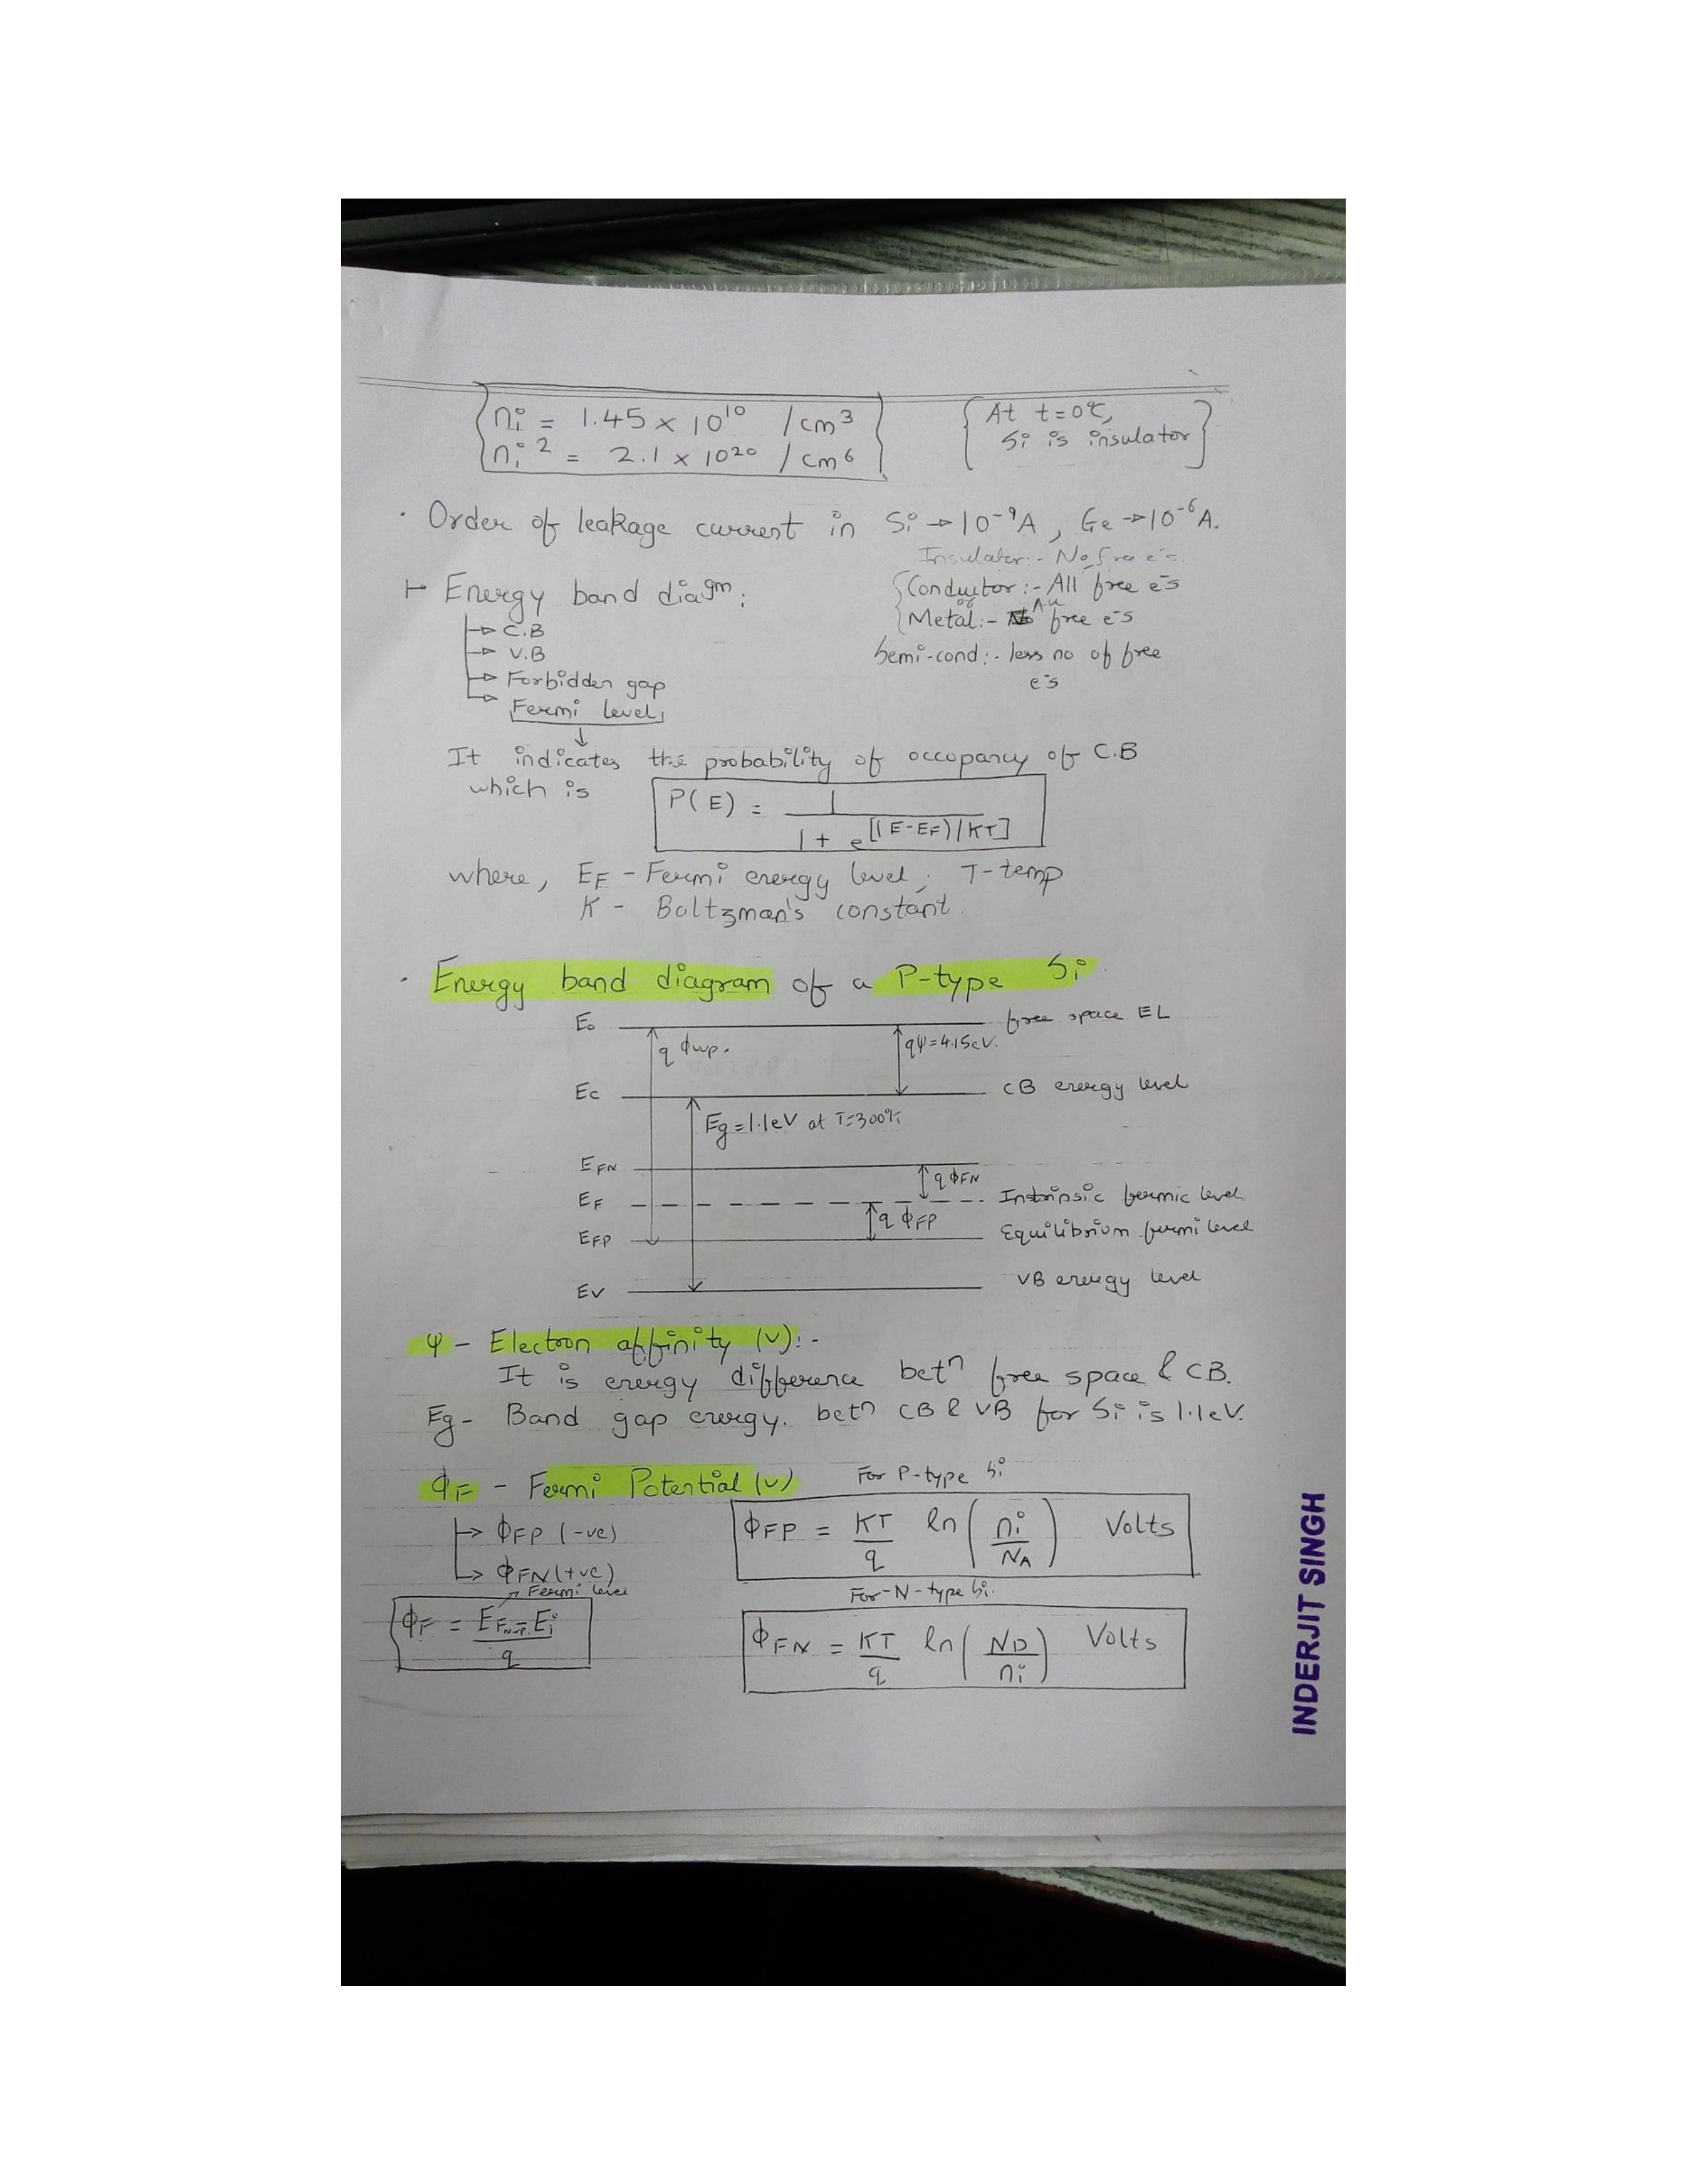 ni = 1.45 × 10^10 /cm3
ni^2 = 2.1 × 10^20 / cm6
{At t=0℃, Si is insulator}
· Order of leakage current in Si → 10^-9 A, Ge → 10^-6 A.
Insulator:- No free e^-s.
Energy band diagm:
Conductor:- All free e^-s
or
Metal:- All free e^-s
→ C.B
→ V.B
Semi-cond:- less no of free e^-s
→ Forbidden gap
→ Fermi level
It indicates the probability of occupancy of C.B
which is P(E) = 1 / 1 + e^[(E-EF)/KT]
where, EF - Fermi energy level; T-temp
K - Boltzman's constant.
· Energy band diagram of a P-type Si
Eo free space EL
qφwp. qψ=4.15eV.
Ec CB energy level
Eg=1.1eV at T=300°K
EFN
qφFN
EF Intrinsic fermic level
qφFP
EFP Equilibrium fermi level
EV VB energy level
ψ - Electron affinity (V):-
It is energy difference betn free space & CB.
Eg- Band gap energy. betn CB & VB for Si is 1.1eV.
φF - Fermi Potential (V)
For P-type Si
→ φFP (-ve)
φFP = KT/q ln(ni/NA) Volts
→ φFN (+ve)
Fermi level
For-N-type Si.
φF = EFN-P - Ei / q
φFN = KT/q ln(ND/ni) Volts
INDERJIT SINGH